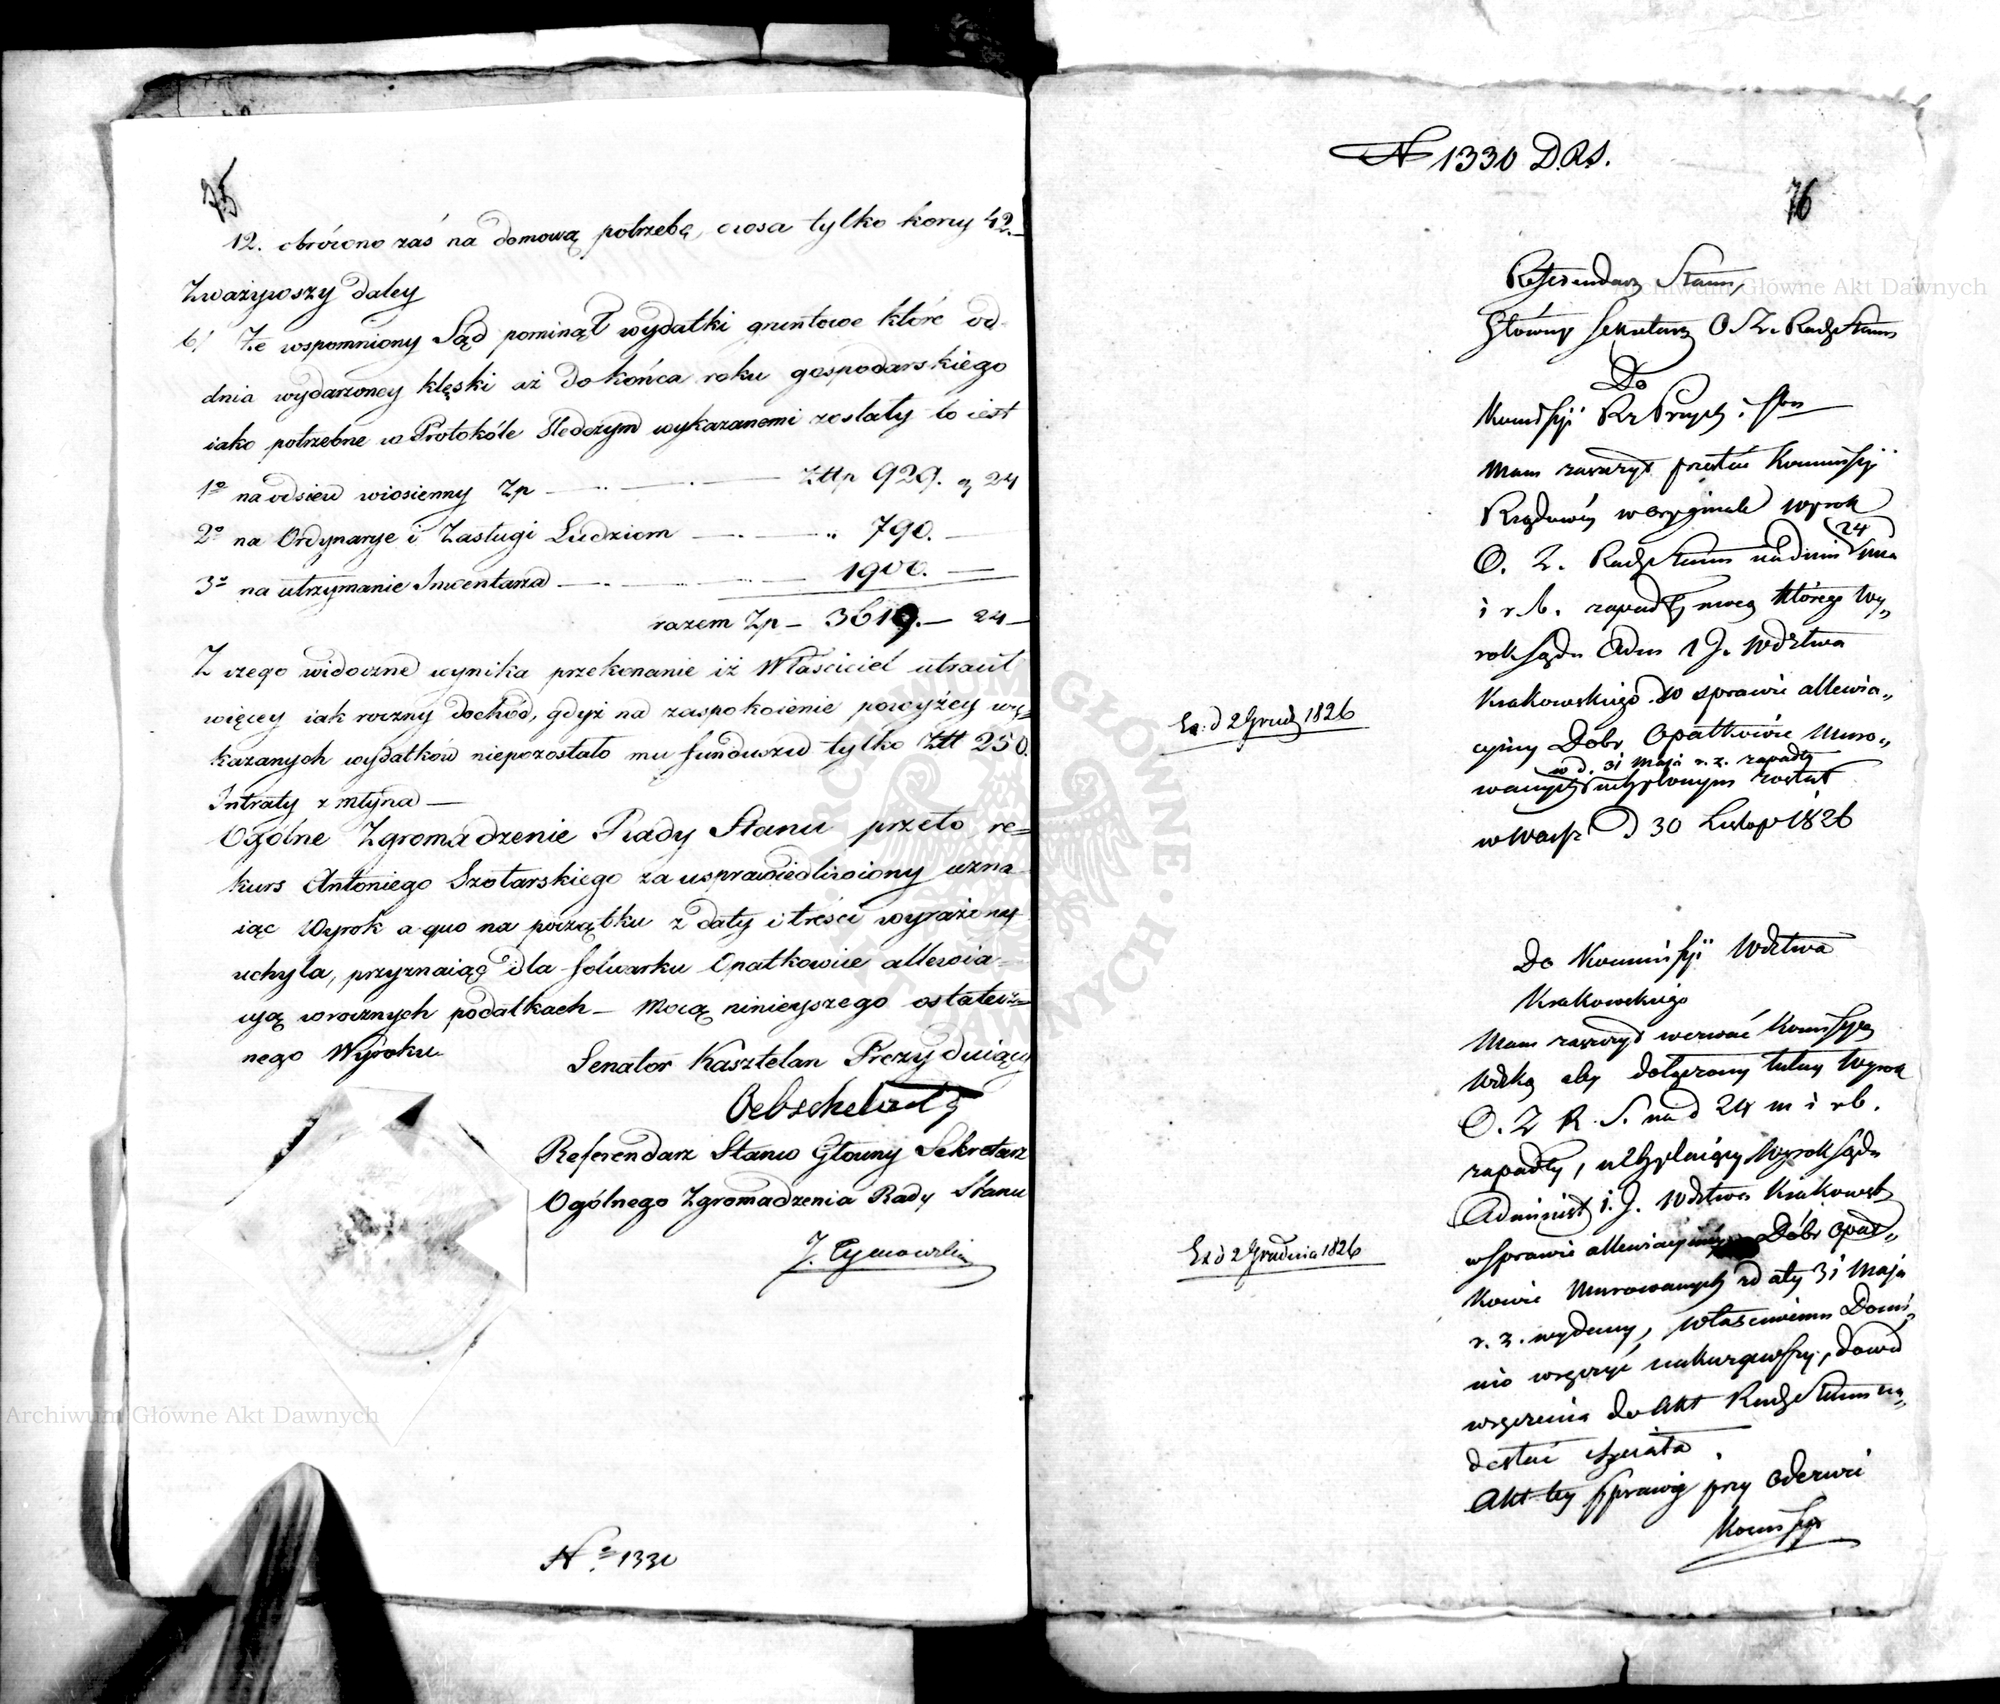 75
12. obrócono zaś na domową potrzebę, owsa tylko korcy 42.
Zważywszy daley
b/ Że wspomniony Sąd pominął wydatki gruntowe które od
dnia wydarzoney klęski aż do końca roku gospodarskiego
iako potrzebne w Protokóle Sledczym wykazanemi zostały to iest
1º na odsiew wiosienny Zp — Złłp 929. g 24
2º na Ordynarye i Zasługi Ludziom — „ 790. —
3º na utrzymanie Inwentarza — 1900. —
razem Zp — 3619. — 24 —
Z czego widoczne wynika przekonanie iż Właściciel utracił
więcey iak roczny dochód, gdyż na zaspokoienie powyżey wy=
kazanych wydatków niepozostało mu funduszu tylko Złł 250.
Intraty z młyna —
Ogólne Zgromadzenie Rady Stanu przeto re=
kurs Antoniego Szotarskiego za usprawiedliwiony uzna
iąc Wyrok a quo na początku z daty i treści wyrażony
uchyla, przyznaiąc dla folwarku Opatkowice allewia=
cyją w rocznych podatkach — Mocą ninieyszego ostatecz=
nego Wyroku.
Senator Kasztelan Prezyduiący
Referendarz Stanu Głowny Sekretarz
Ogólnego Zgromadzenia Rady Stanu
J. Tymowski
Nº 1330
N 1330 D.R.S.
76
Referendarz Stanu
Główny Sekretarz O. Z. Rady Stanu
Do
Kommissyi Rz Przych i Skar
Mam zaszczyt przesłać Kommissyi
Rządowéy w oryginale wyrok
O. Z. Rady Stanu na dniu 24 m
i r. b. zapadły mocą którego Wy„
rok Sądu Adm 1 J. Wdztwa
Krakowskiego w sprawie allewia„
cyiney Dóbr Opatkowic Muro„
w d. 31 Maja r. z. zapadły
wanych uchylonym został
w Warsz d 30 Listop 1826
Ex. d 2 Grud 1826
Do Kommissyi Wdztwa
Krakowskiego
Mam zaszczyt wezwać Kommissyą
Wdzką aby dołączony tutay Wyrok
O. Z R. S. na d 24 m i r b.
zapadły, uchylaiący Wyrok Sądu
Administ 1. J. Wdztwa Krakowsk
w sprawie allewiacyiney Dóbr Opat„
kowic Murowanych z daty 31 Maja
r. z. wydany, właściwemu Domi„
nio wręczyć nakazawszy, dowód
wręczenia do Akt Rady Stanu na„
desłać chciała.
Akt tey sprawy przy odezwie
Ex d 2 Grudnia 1826